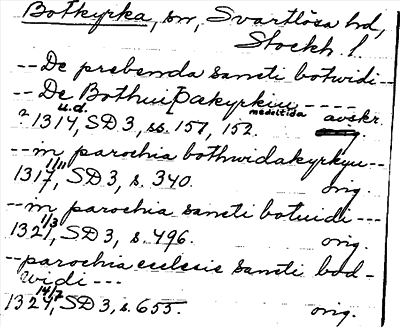 Botkyrka, sn, Svartlösa hd,
Stockh. l.
-- De prebenda sancti botwidi --
-- De Bothuidakyrkiu -----
u.d. medeltida avskr.
? 1314, SD 3, ss. 151, 152.
-- in parochia bothwidakyrkyu --
1317 1/11, SD 3, s. 340. orig.
-- in parochia sancti botuidi ---
1321 1/3, SD 3, s. 496. orig.
-- parochia ecclesie sancti bod-
widi ---
1324 14/7, SD 3, s. 655. orig.